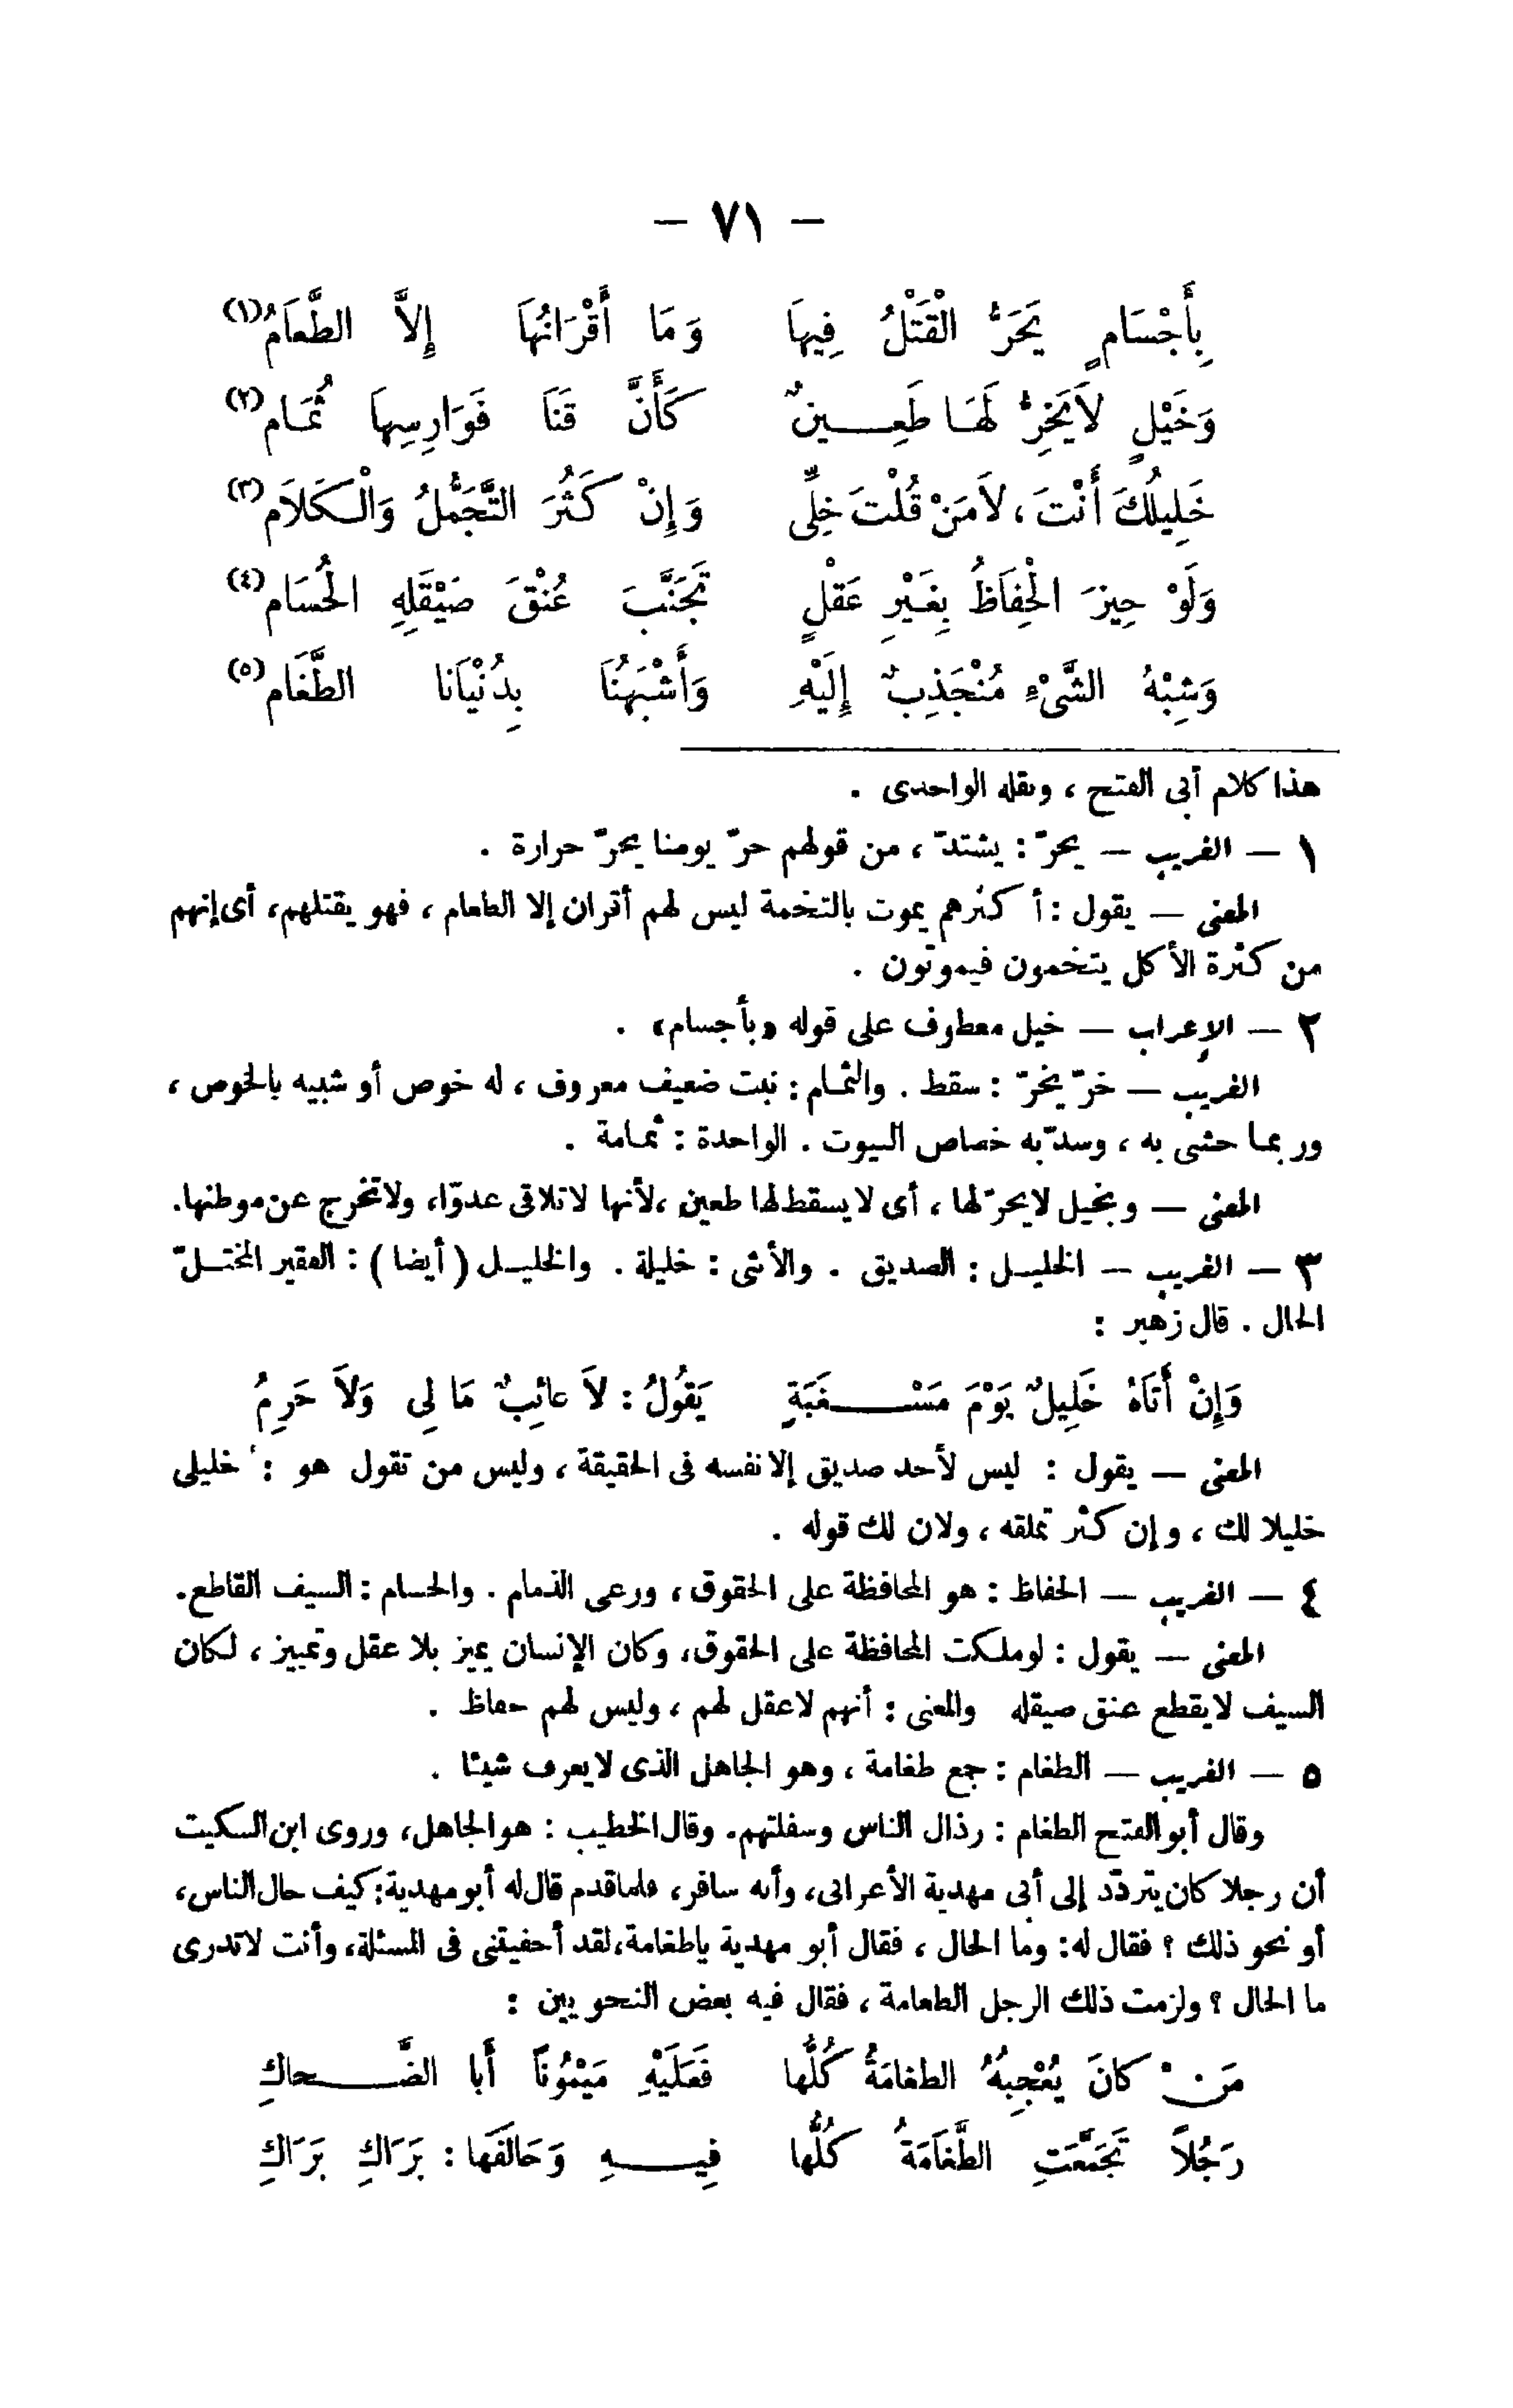 — ٧١ —
بِأَجْسَامٍ يَحَرُّ الْقَتْلُ فِيهَا وَمَا أَقْرَانُهَا إِلاَّ الطَّعَامُ (١)
وَخَيْلٍ لاَيَخِرُّ لَهَا طَعِينٌ كَأَنَّ قَنَا فَوَارِسِهَا ثُمَام (٢)
خَلِيلُكَ أَنْتَ، لاَمَنْ قُلْتَ خِلِّى وَإِنْ كَثُرَ التَّجَمُّلُ وَالْكَلاَم (٣)
وَلَوْ حِيزَ الْحِفَاظُ بِغَيْرِ عَقْلٍ تَجَنَّبَ عُنْقَ صَيْقَلِهِ الْحُسَام (٤)
وَشِبْهُ الشَّىْءِ مُنْجَذِبٌ إِلَيْهِ وَأَشْبَهُنَا بِدُنْيَانا الطَّغَام (٥)
هذا كلام أبى الفتح ، ونقله الواحدى .
١ — الغريب — يحرّ : يشتدّ ، من قولهم حرّ يومنا يحرّ حرارة .
المعنى — يقول : أكثرهم يموت بالتخمة ليس لهم أقران إلا الطعام ، فهو يقتلهم، أى إنهم
من كثرة الأكل يتخمون فيموتون .
٢ — الإعراب — خيل معطوف على قوله «بأجسام» .
الغريب — خرّ يخرّ : سقط . والثمام : نبت ضعيف معروف ، له خوص أو شبيه بالخوص ،
وربما حشى به ، وسدّ به خصاص البيوت . الواحدة : ثمامة .
المعنى — وبخيل لايحرّ لها ، أى لا يسقط لها طعين ،لأنها لاتلاقى عدوّا، ولاتخرج عن موطنها.
٣ — الغريب — الخليل : الصديق . والأنثى : خليلة . والخليل (أيضا) : الفقير المختلّ
الحال . قال زهير :
وَإِنْ أَتَاهُ خَلِيلٌ يَوْمَ مَسْغَبَةٍ يَقُولُ : لاَ عائِبٌ مَا لِى وَلاَ حَرِمُ
المعنى — يقول : ليس لأحد صديق إلا نفسه فى الحقيقة ، وليس من تقول هو : خليلى
خليلا لك ، وإن كثر تملقه ، ولان لك قوله .
٤ — الغريب — الحفاظ : هو المحافظة على الحقوق ، ورعى الذمام . والحسام : السيف القاطع.
المعنى — يقول : لوملكت المحافظة على الحقوق، وكان الإنسان يميز بلا عقل وتمييز ، لكان
السيف لايقطع عنق صيقله والمعنى : أنهم لاعقل لهم ، وليس لهم حفاظ .
٥ — الغريب — الطغام : جمع طغامة ، وهو الجاهل الذى لايعرف شيئا .
وقال أبو الفتح الطغام : رذال الناس وسفلتهم. وقال الخطيب : هو الجاهل، وروى ابن السكيت
أن رجلا كان يتردّد إلى أبى مهدية الأعرابى، وأنه سافر، فلماقدم قال له أبو مهدية: كيف حال الناس،
أو نحو ذلك ؟ فقال له: وما الحال ، فقال أبو مهدية ياطغامة،لقد أحفيتنى فى المسئلة، وأنت لاتدرى
ما الحال ؟ ولزمت ذلك الرجل الطعامة ، فقال فيه بعض النحويين :
مَنْ كانَ يُعْجِبُهُ الطغامَةُ كُلُّها فَعَلَيْهِ مَيْمُوناً أَبا الضَّحاكِ
رَجُلاً تَجَمَّعَتِ الطَّغَامَةُ كُلُّها فِيهِ وَحَالَفَها : بَرَاكِ بَرَاكِ